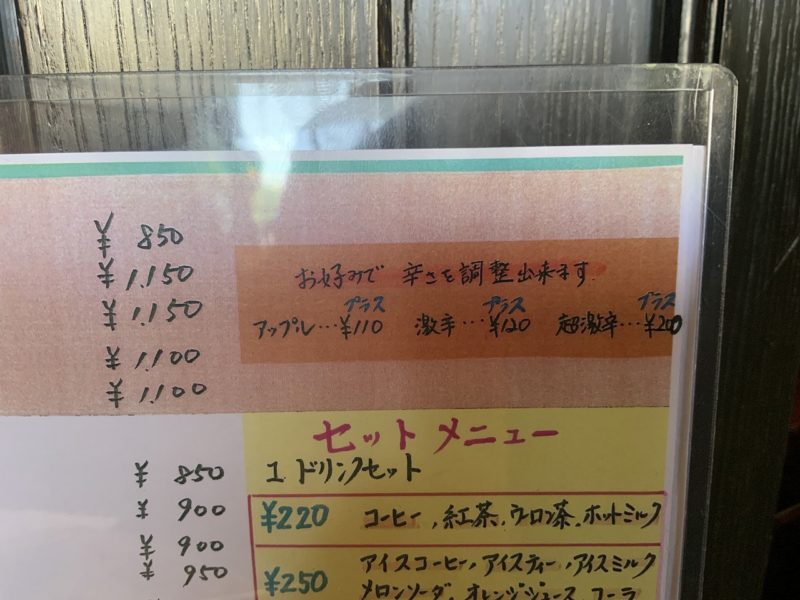 ¥850
¥1,150
¥1,150
¥1,100
¥1,100
お好みで 辛さを調整出来ます.
プラス プラス プラス
アップル…¥110 激辛…¥120 超激辛…¥200
¥850
¥900
¥900
¥950
セットメニュー
1ドリンクセット
¥220 コーヒー,紅茶,ウーロン茶,ホットミルク
¥250 アイスコーヒー,アイスティー,アイスミルク
メロンソーダ,オレンジジュース,コーラ